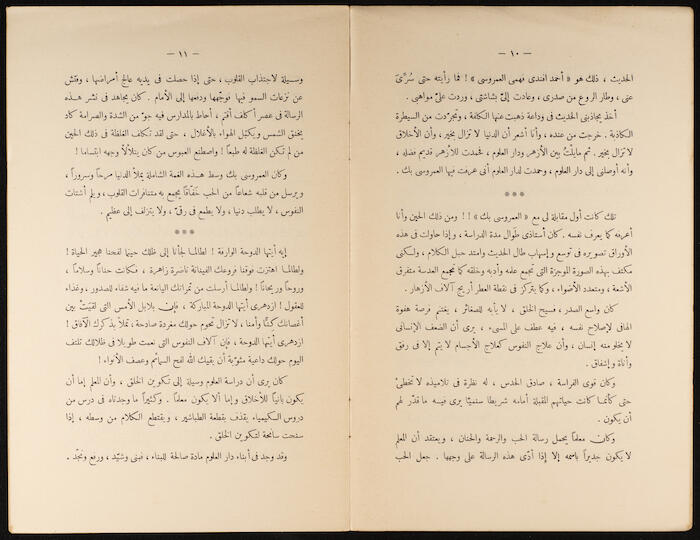 — ١٠ —
الحديث ، ذلك هو « أحمد افندى فهمى العمروسى » ! فما رأيته حتى سُرِّىَ
عنى ، وطار الروع من صدرى ، وعادت إلىّ بشاشتى ، وردت علىّ مواهبى .
أخذ يجاذبنى الحديث فى وداعة ذهبت عنها الكلفة ، وتجرّدت من السيطرة
الكاذبة . خرجت من عنده ، وأنا أشعر أن الدنيا لا تزال بخير ، وأن الأخلاق
لا تزال بخير . ثم مايلتُ بين الأزهر ودار العلوم ، فحمدت للأزهر قديم فضله ،
وأنه أوصلنى إلى دار العلوم ، وحمدت لدار العلوم أنى عرفت فيها العمروسى بك .
***
تلك كانت أول مقابلة لى مع « العمروسى بك » !! ومن ذلك الحين وأنا
أعرفه كما يعرف نفسه . كان أستاذى طَوال مدة الدراسة ، وإذا حاولت فى هذه
الأوراق تصويره فى توسع وإسهاب طال الحديث وامتد حبل الكلام ، ولكنى
مكتف بهذه الصورة الموجزة التى تجمع علمه وأدبه وخلقه كما تجمع العدسة متفرق
الأشعة ، ومتعدد الأضواء ، وكما يتركز فى نقطة العطر أريج آلاف الأزهار .
كان واسع الصدر ، فسيح الخلق ، لا يأبه للصغائر ، يغتنم فرصة هفوة
الهافى لإصلاح نفسه ، فيه عطف على المسىء ، يرى أن الضعف الإنسانى
لا يخلو منه إنسان ، وأن علاج النفوس كعلاج الأجسام لا يتم إلا فى رفق
وأناة وإشفاق .
وكان قوى الفراسة ، صادق الحدس ، له نظرة فى تلاميذه لا تخطئ
حتى كأنما كانت حياتهم المقبلة أمامه شريطا سنميّا يرى فيه ما قدّر لهم
أن يكون .
وكان معلما يحمل رسالة الحب والرحمة والحنان ، ويعتقد أن المعلم
لا يكون جديراً باسمه إلا إذا أدّى هذه الرسالة على وجهها . جعل الحب
— ١١ —
وسيلة لاجتذاب القلوب ، حتى إذا حصلت فى يديه عالج أمراضها ، وفتش
عن نزعات السمو فيها فوجّهها ودفعها إلى الأمام . كان يجاهد فى نشر هذه
الرسالة فى عصر أكلف أقتم ، أحاط بالمدارس فيه جوّ من الشدة والصرامة كاد
يخنق الشمس ويكبّل الهواء بالأغلال ، حتى لقد تكلف الغلظة فى ذلك الحين
من لم تكن الغلظة له طبعاً ! واصطنع العبوس من كان يتلألأ وجهه ابتساما !
وكان العمروسى بك وسط هذه الغمة الشاملة يملأ الدنيا مرحاً وسروراً ،
ويرسل من قلبه شعاعاً من الحب خَفّاقاً يجمع به متنافرات القلوب ، ويلم أشتات
النفوس ، لا يطلب دنيا ، ولا يطمع فى رقىّ ، ولا يتزلف إلى عظيم .
***
إيه أيتها الدوحة الوارفة ! لطالما لجأنا إلى ظلك حينما لفحنا هجير الحياة !
ولطالما اهتزت فوقنا فروعك الفينانة ناضرة زاهرة ، فكانت حناناً وسلاماً ،
وروحاً وريحاناً ! ولطالما أرسلت من ثمراتك اليانعة ما فيه شفاء للصدور ، وغذاء
للعقول ! ازدهرى أيتها الدوحة المباركة ، فإن بلابل الأمس التى لقيَتْ بين
أغصانك كِنًّا وأمنا ، لا تزال تحوم حولك مغردة صادحة ، تملأ بذكرك الآفاق !
ازدهرى أيتها الدوحة ، فإن آلاف النفوس التى نعمت طويلا فى ظلالك تلتف
اليوم حولك داعية مشوّبة أن يقيك الله لفح السمائم وعصف الأنواء !
كان يرى أن دراسة العلوم وسيلة إلى تكوين الخلق ، وأن المعلم إما أن
يكون بانياً للأخلاق وإما ألا يكون معلما . وكثيراً ما وجدناه فى درس من
دروس الكيمياء يقذف بقطعة الطباشير ، ويقتطع الكلام من وسطه ، إذا
سنحت سانحة لتكوين الخلق .
وقد وجد فى أبناء دار العلوم مادة صالحة للبناء ، فبنى وشيّد ، ورفع ونجّد .